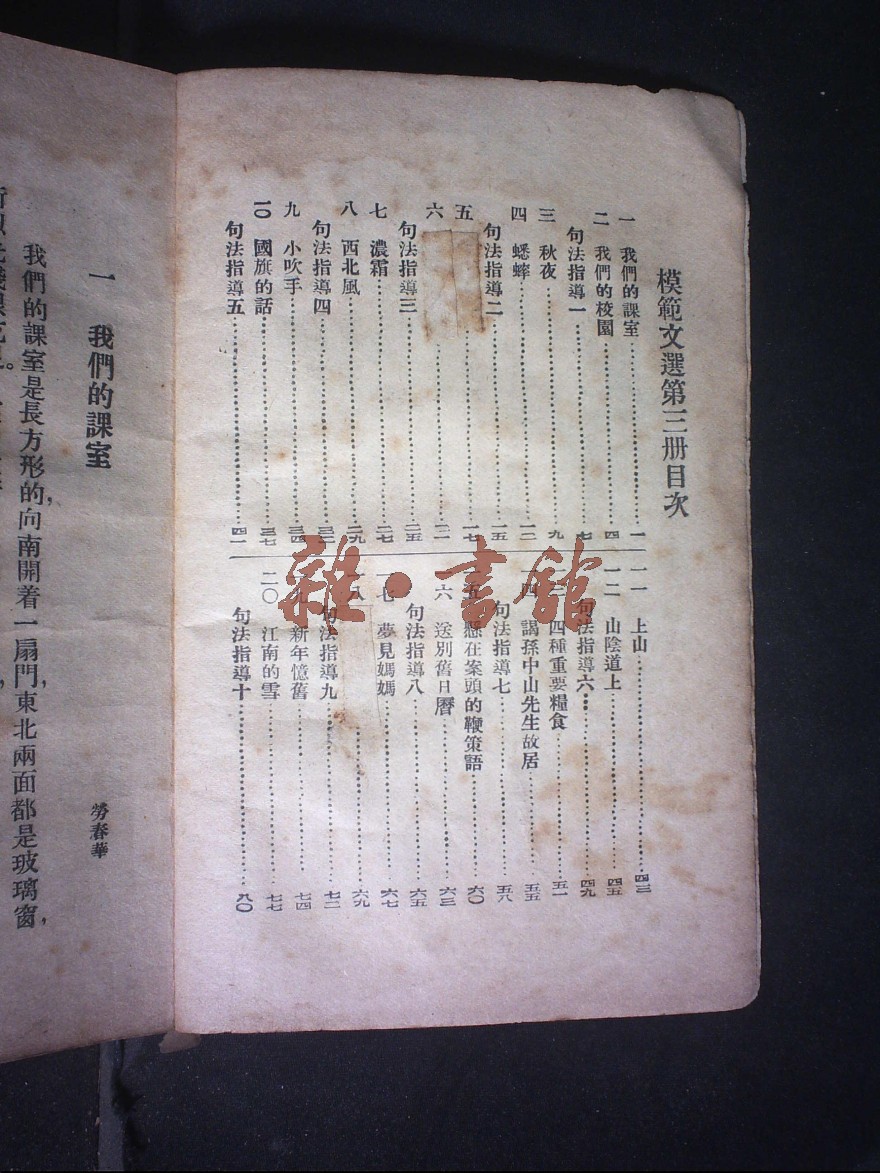 模範文選第三册目次
一 我們的課室 一
二 我們的校園 四
句法指導一 七
三 秋夜 九
四 蟋蟀 一二
句法指導二 一五
五 一七
六
句法指導三 二五
七 濃霜 二七
八 西北風 二九
句法指導四
九 小吹手 三四
一〇 國旗的話 三七
句法指導五 四一
一一 上山 四三
一二 山陰道上 四五
句法指導六 四九
四種重要糧食 五一
一四 謁孫中山先生故居 五五
句法指導七 五八
五 懸在案頭的鞭策語 六〇
六 送別舊日曆 六三
句法指導八 六五
七 夢見媽媽 六七
一八 六九
句法指導九 七二
九 新年憶舊 七四
二〇 江南的雪 七七
句法指導十 八〇
雜·書館
一 我們的課室
勞春華
我們的課室是長方形的,向南開着一扇門,東北兩面都是玻璃窗,